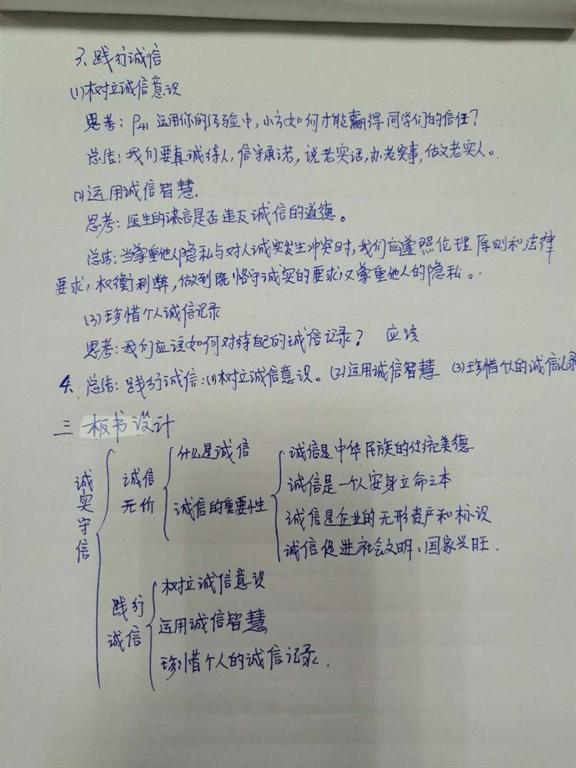 3、践行诚信
(1)树立诚信意识
思考：P41 运用你的经验中，小方如何才能赢得同学们的信任？
总结：我们要真诚待人，信守承诺，说老实话，办老实事，做老实人。
(2)运用诚信智慧.
思考：医生的谎言是否违反诚信的道德。
总结：当尊重他人隐私与对人诚实发生冲突时，我们应遵照伦理原则和法律
要求，权衡利弊，做到既恪守诚实的要求又尊重他人的隐私。
(3)珍惜个人诚信记录
思考：我们应该如何对待自己的诚信记录？ 应该
4、总结：践行诚信：(1)树立诚信意识。(2)运用诚信智慧 (3)珍惜个人的诚信记录
三 板书设计
诚实守信
诚信无价
什么是诚信
诚信的重要性
诚信是中华民族的传统美德
诚信是一个人安身立命之本
诚信是企业的无形资产和标识
诚信促进社会文明、国家兴旺.
践行诚信
树立诚信意识
运用诚信智慧
珍惜个人的诚信记录.